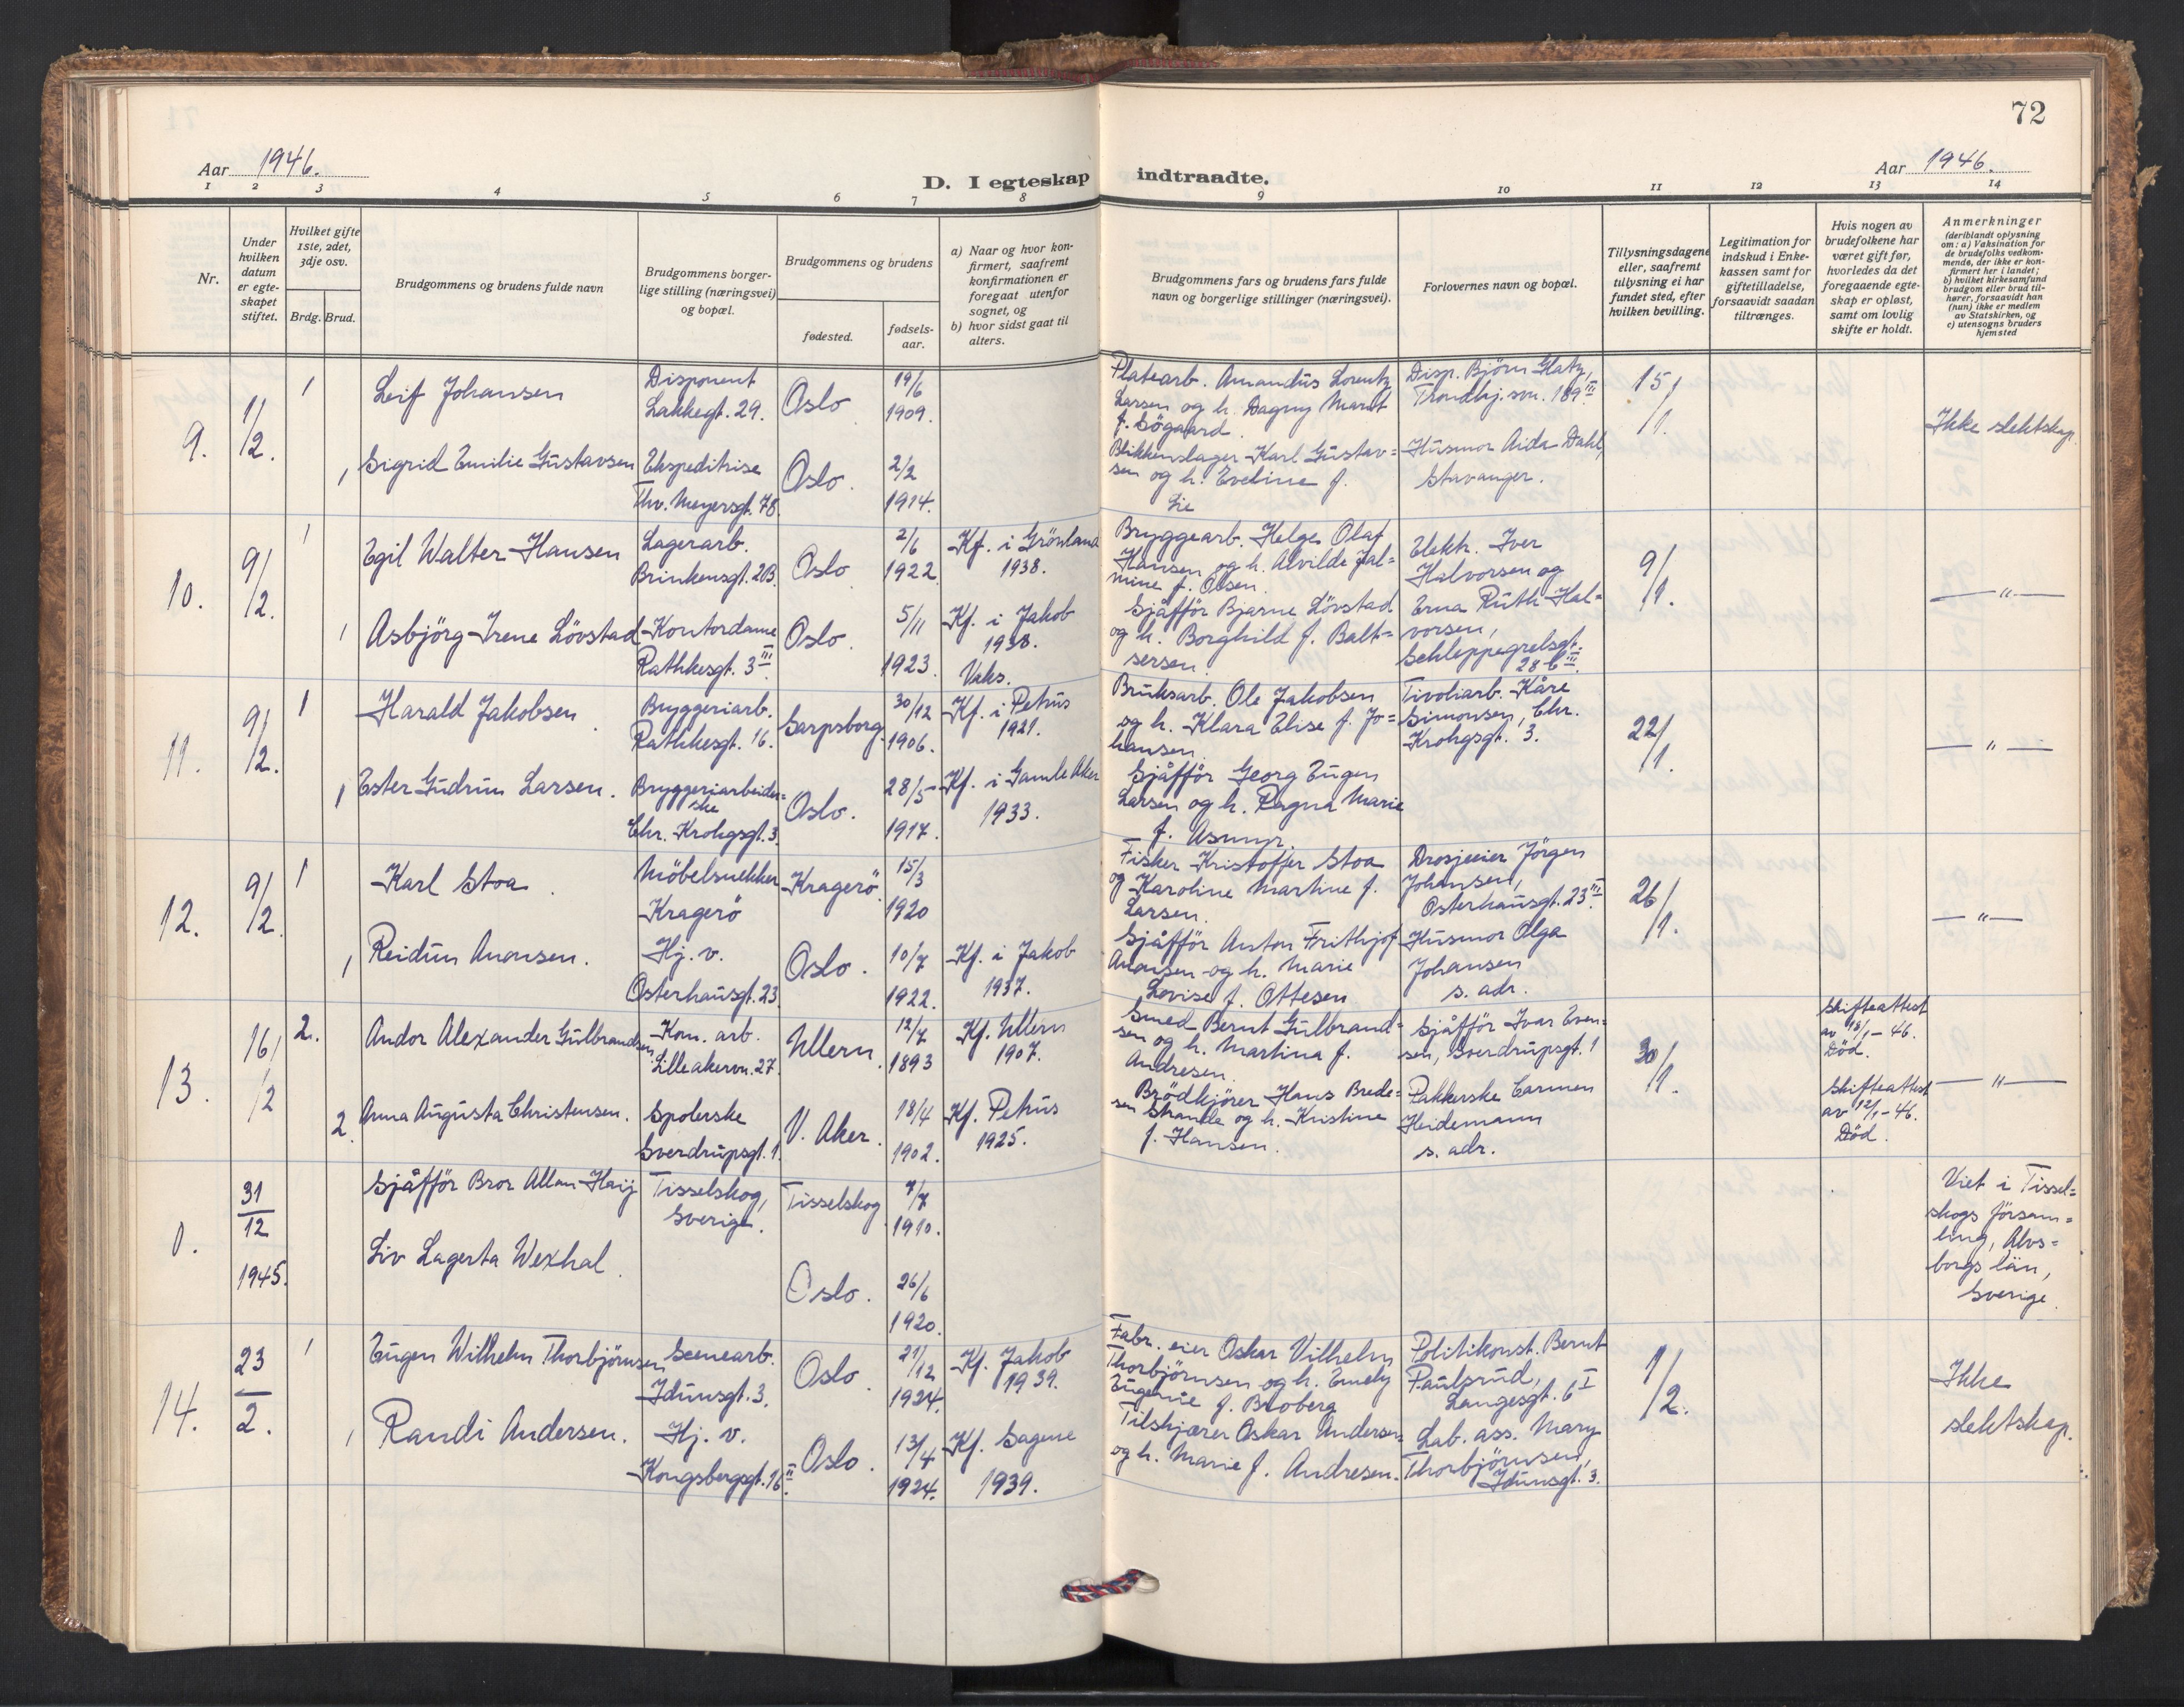 72
Aar 1946.
D. I egteskap indtraadte.
Aar 1946.
1 2 3 4 5 6 7 8 9 10 11 12 13 14
Nr.
Under hvilken datum er egte-skapet stiftet.
Hvilket gifte 1ste, 2det, 3dje osv.
Brdg. Brud.
Brudgommens og brudens fulde navn
Brudgommens borger-lige stilling (næringsvei) og bopæl.
Brudgommens og brudens
fødested.
fødsels-aar.
a) Naar og hvor kon-firmert, saafremt konfirmationen er foregaat utenfor sognet, og
b) hvor sidst gaat til alters.
Brudgommens fars og brudens fars fulde navn og borgerlige stillinger (næringsvei).
Forlovernes navn og bopæl.
Tillysningsdagene eller, saafremt tillysning ei har fundet sted, efter hvilken bevilling.
Legitimation for indskud i Enke-kassen samt for giftetilladelse, forsaavidt saadan tiltrænges.
Hvis nogen av brudefolkene har været gift før, hvorledes da det foregaaende egte-skap er opløst, samt om lovlig skifte er holdt.
Anmerkninger
(deriblandt oplysning om: a) Vaksination for de brudefolks vedkom-mende, der ikke er kon-firmert her i landet;
b) hvilket kirkesamfund brudgom eller brud til-hører, forsaavidt han (hun) ikke er medlem av Statskirken, og
c) utensogns bruders hjemsted
9.
1/2.
1
Leif Johansen
Disponent
Lakkegt. 29.
Oslo
19/6
1909.
Platearb. Amandus Lorentz
Larsen og h. Dagny Marit
f. Søgaard.
Disp. Bjørn Glatz,
Trondhj.svn. 189 III
15/1.
Ikke slektskap.
1
Sigrid Emilie Gustavsen
Ekspeditrise
Thv. Meyersgt. 78.
Oslo.
2/2
1914.
Blikkenslager Karl Gustav=
sen og h. Eveline f.
Lie
Husmor Aida Dahl,
Stavanger.
10.
9/2.
1
Egil Walter Hansen
Lagerarb.
Brinkensgt. 20B.
Oslo
2/6
1922.
Kf. i Grönland
1938.
Bryggearb. Helge Olaf
Hansen og h. Alvilde Jal=
mine f. Olsen.
Elektr. Iver
Halvorsen og
Erna Ruth Hal=
vorsen,
Schleppegrelsgt.
28 b III
9/1.
— " —
1
Asbjörg Irene Lövstad
Kontordame
Rathkesgt. 3 III
Oslo.
5/11
1923.
Kf. i Jakob
1938.
Vaks.
Sjåfför Bjarne Lövstad
og h. Borghild f. Balt=
sersen.
11.
9/2.
1
Harald Jakobsen.
Bryggeriarb.
Rathkesgt. 16.
Sarpsborg.
30/12
1906.
Kf. i Petrus
1921.
Bruksarb. Ole Jakobsen
og h. Klara Elise f. Jo=
hansen.
Tivoliarb. Kåre
Simonsen, Chr.
Krohgsgt. 3.
22/1.
— " —
1
Ester Gudrun Larsen.
Bryggeriarbeider=
ske
Chr. Krohgsgt. 3.
Oslo.
28/5
1917.
Kf. i Gamle Aker
1933.
Sjåfför Georg Eugen
Larsen og h. Ragna Marie
f. Asmyr.
12.
9/2.
1
Karl Stoa.
Möbelsnekker
Kragerö
Kragerö.
15/3
1920
Fisker Kristoffer Stoa
og Karoline Martine f.
Larsen.
Drosjeeier Jörgen
Johansen,
Osterhausgt. 23 III
26/1.
— " —
1
Reidun Anonsen.
Hj. v.
Osterhausgt. 23.
Oslo.
10/7
1922.
Kf. i Jakob
1937.
Sjåfför Anton Frithjof
Anonsen og h. Marie
Lovise f. Ottesen
Husmor Olga
Johansen
s. adr.
13.
16/2
2.
Andor Alexander Gulbrandsen
Kom. arb.
Lilleakervn. 27.
Ullern.
12/7
1893
Kf. Ullern
1907.
Smed Bernt Gulbrand=
sen og h. Martina f.
Andresen.
Sjåfför Ivar Even=
sen, Sverdrupsgt. 1
30/1.
Skifteattest
av 18/1 - 46.
Död.
— " —
2.
Anna Augusta Christensen.
Spolerske
Sverdrupsgt. 1.
V. Aker.
18/4
1902.
Kf. Petrus
1925.
Brödkjører Hans Brede=
sen Strande og h. Kristine
f. Hansen.
Pakkerske Carmen
Heidemann
s. adr.
Skifteattest
av 12/1 - 46.
Död.
0.
31/12
1945.
Sjåfför Bror Allan Haij
Tisselskog,
Sverige.
Tisselskog
7/7
1910.
Viet i Tissel=
skogs försam=
ling, Älvs=
borgs län,
Sverige.
Liv Lagerta Wexhal.
Oslo.
26/6
1920.
14.
23/2.
1
Eugen Wilhelm Thorbjörnsen
Scenearb.
Idunsgt. 3.
Oslo.
21/12
1924.
Kf. Jakob
1939.
Fabr. eier Oskar Vilhelm
Thorbjörnsen og h. Emely
Eugenie f. Broberg
Politikonst. Bernt
Paulsrud,
Langesgt. 6 I
1/2.
Ikke
slektskap.
1
Randi Andersen.
Hj. v.
Kongsbergsgt. 16 II
Oslo.
13/4
1924.
Kf. Sagene
1939.
Tilskjærer Oskar Andersen
og h. Marie f. Andresen.
Lab. ass. Mary
Thorbjörnsen,
Idunsgt. 3.